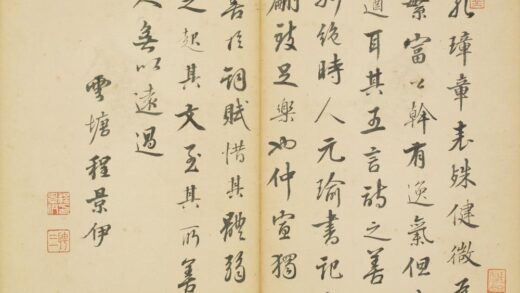 孔璋章表殊健微
繁富公幹有逸氣但
遒耳其五言詩之善
絕時人元瑜書記
翩致足樂也仲宣獨
善於詞賦惜其體弱
起其文至其所善
人無以遠過
雪塘程景伊